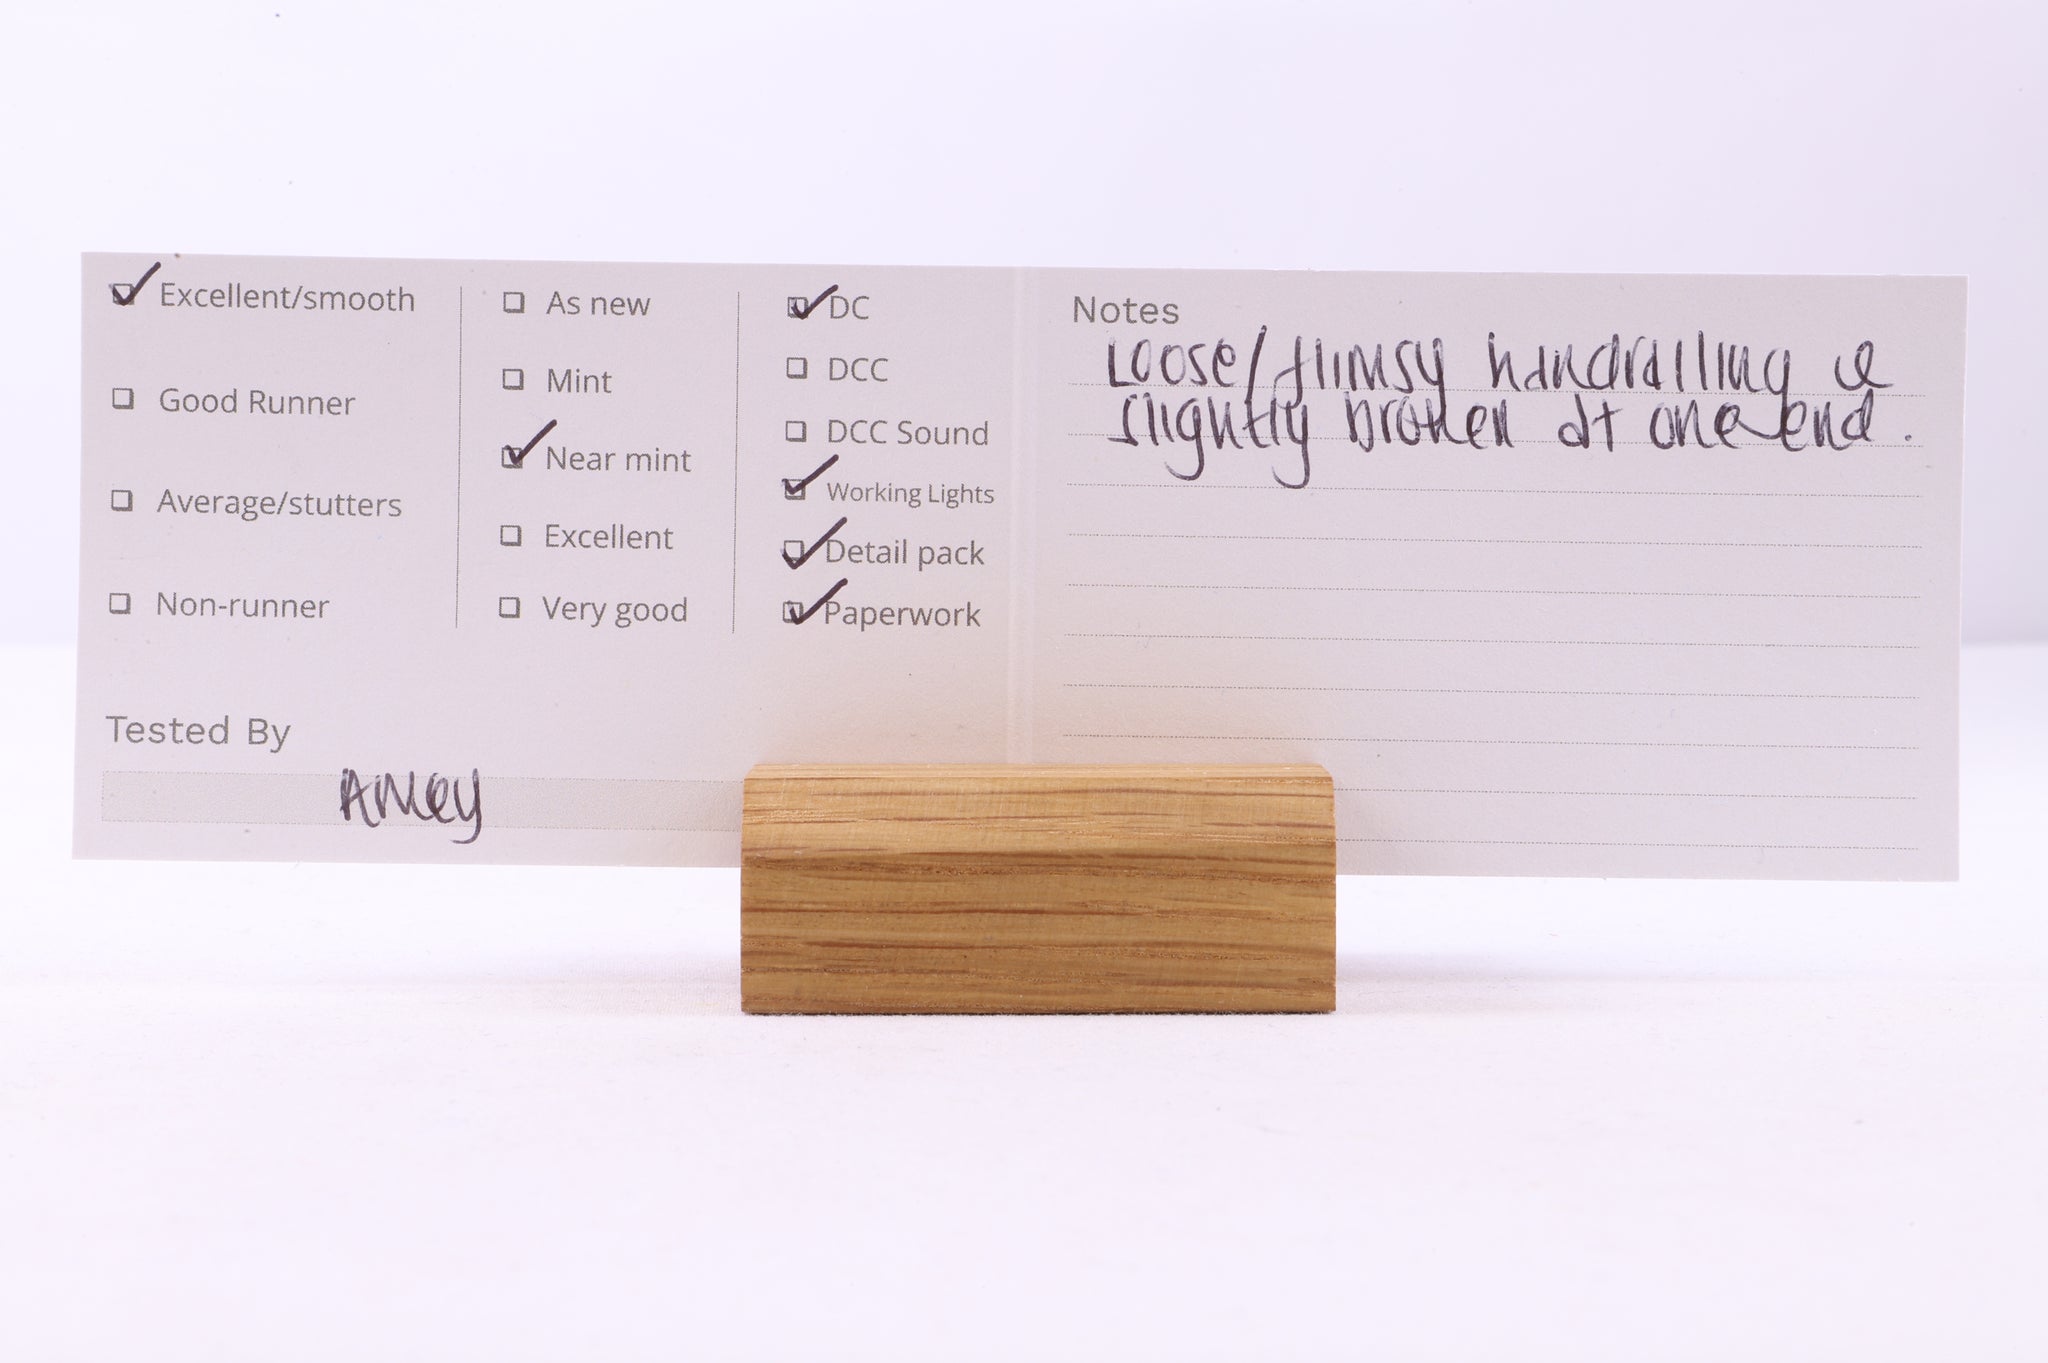 Excellent/smooth
Good Runner
Average/stutters
Non-runner
As new
Mint
Near mint
Excellent
Very good
DC
DCC
DCC Sound
Working Lights
Detail pack
Paperwork
Tested By
Notes
Loose/flimsy handrailing &
slightly broken at one end.